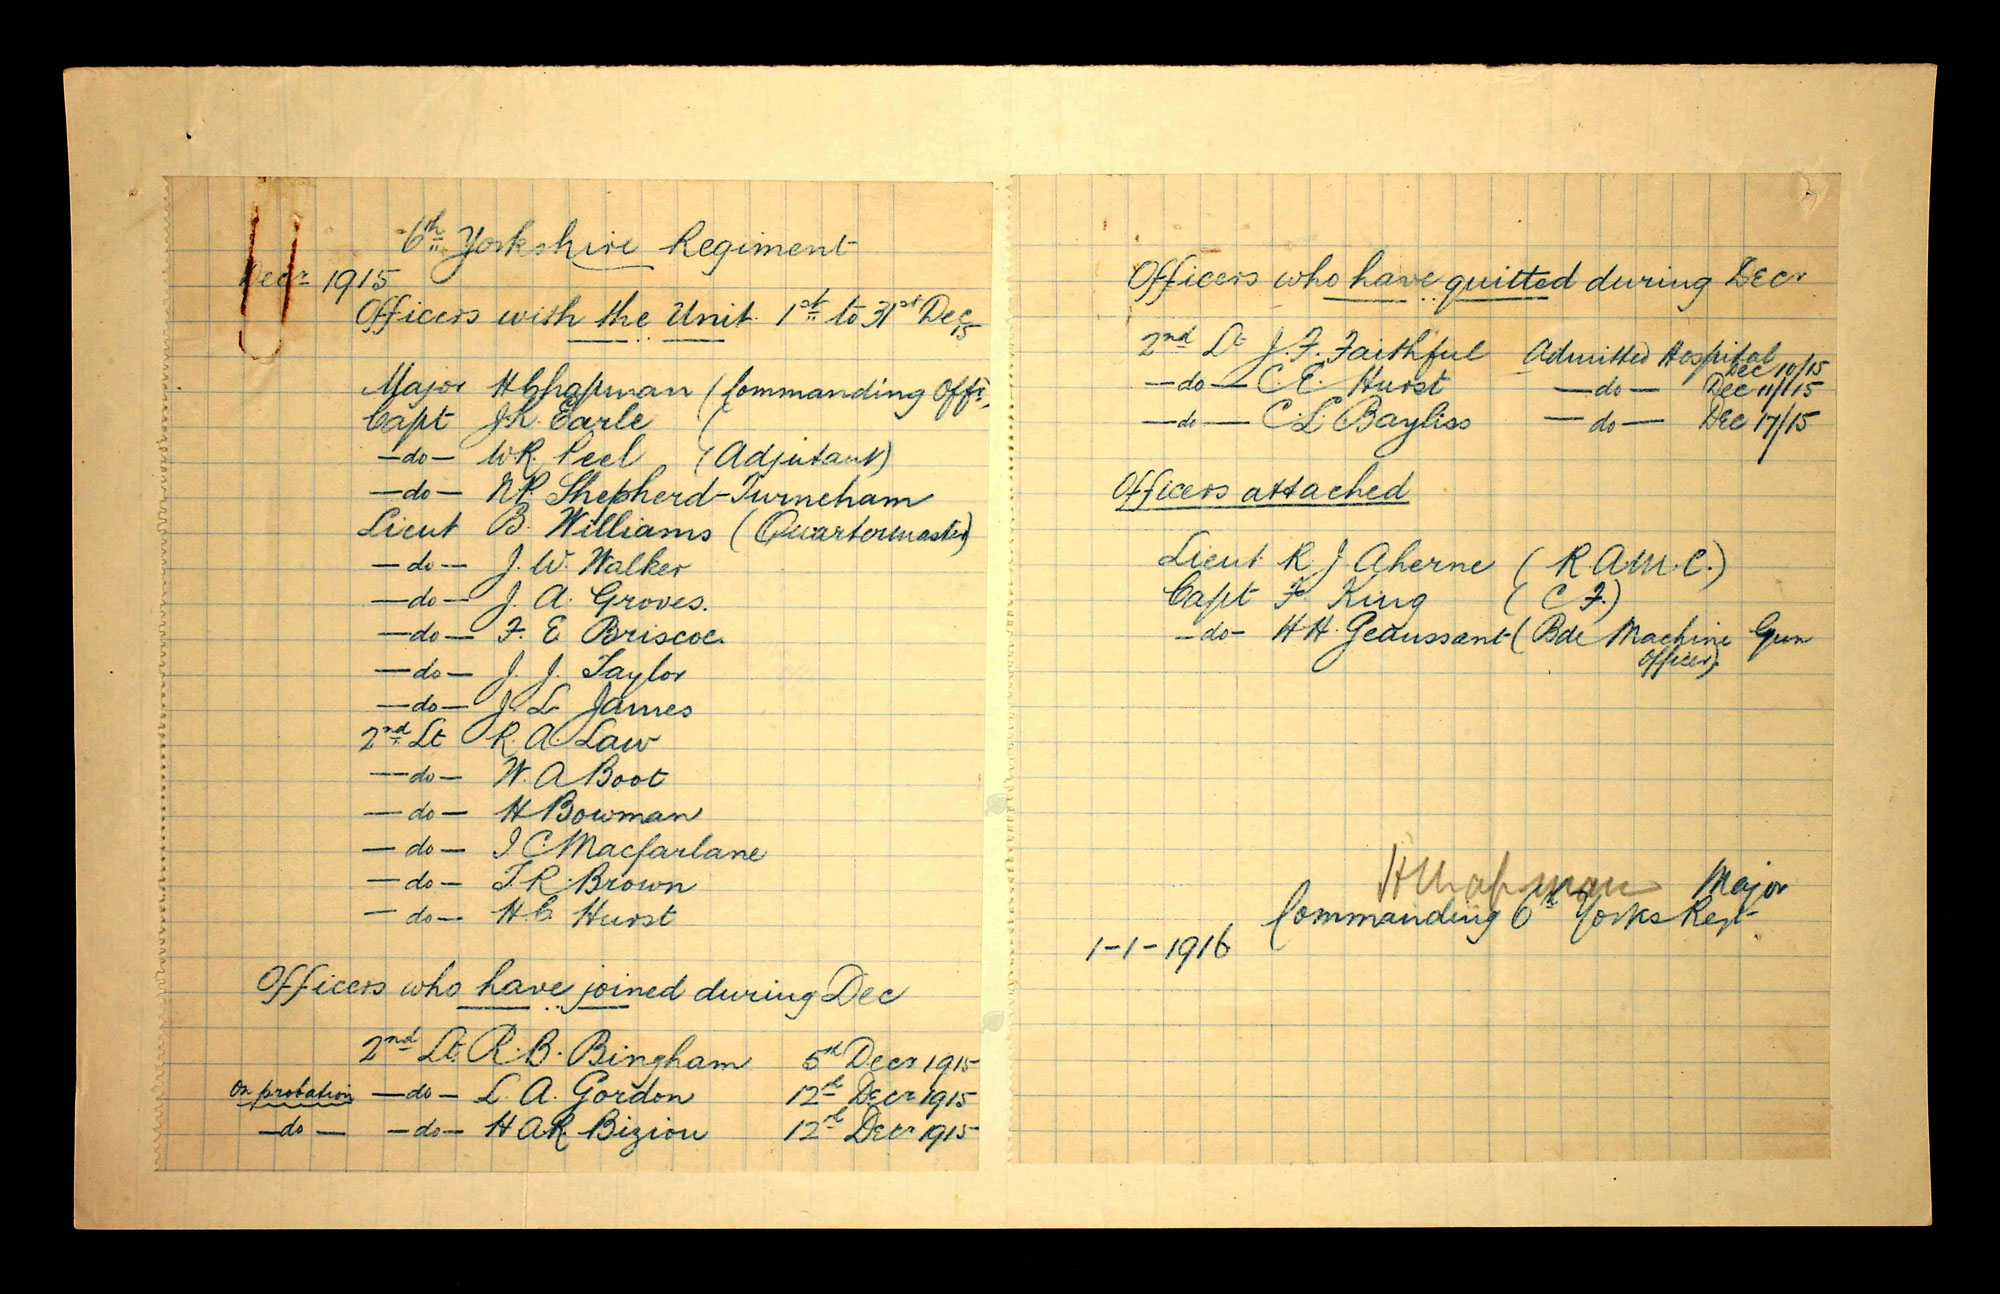 6th Yorkshire Regiment
Decr 1915
Officers with the Unit 1st to 31st Dec 15
Major H Chapman (Commanding Offr)
Capt J.R. Earle (
—do— W.R. Peel (Adjutant)
—do— N.P. Shepherd-Turneham
Lieut B. Williams (Quartermaster)
—do— J. W. Walker
—do— J. A. Groves.
—do— F. E Briscoe.
—do— J. J. Taylor
—do— J. L James
2nd Lt R. A. Law
—do— W. A Boot
—do— H Bowman
—do— I C Macfarlane
—do— T. R. Brown
—do— H. C Hurst
Officers who have joined during Dec
2nd Lt. R. B. Bingham 5th Decr 1915
On probation —do— L. A. Gordon 12th Decr 1915
—do— —do— H A R. Bizion 12th Decr 1915
Officers who have quitted during Decr
2nd Lt J. F. Faithful Admitted Hospital Dec 10/15
—do— C. E. Hurst —do— Dec 11/15
—do— C. L Bayliss —do— Dec 17/15
Officers attached
Lieut R J Aherne (R A.M.C.)
Capt F. King (C F.)
—do— H H. Geaussant (Bde Machine Gun
Officer)
H Chapman Major
Commanding 6th Yorks Regt
1-1-1916